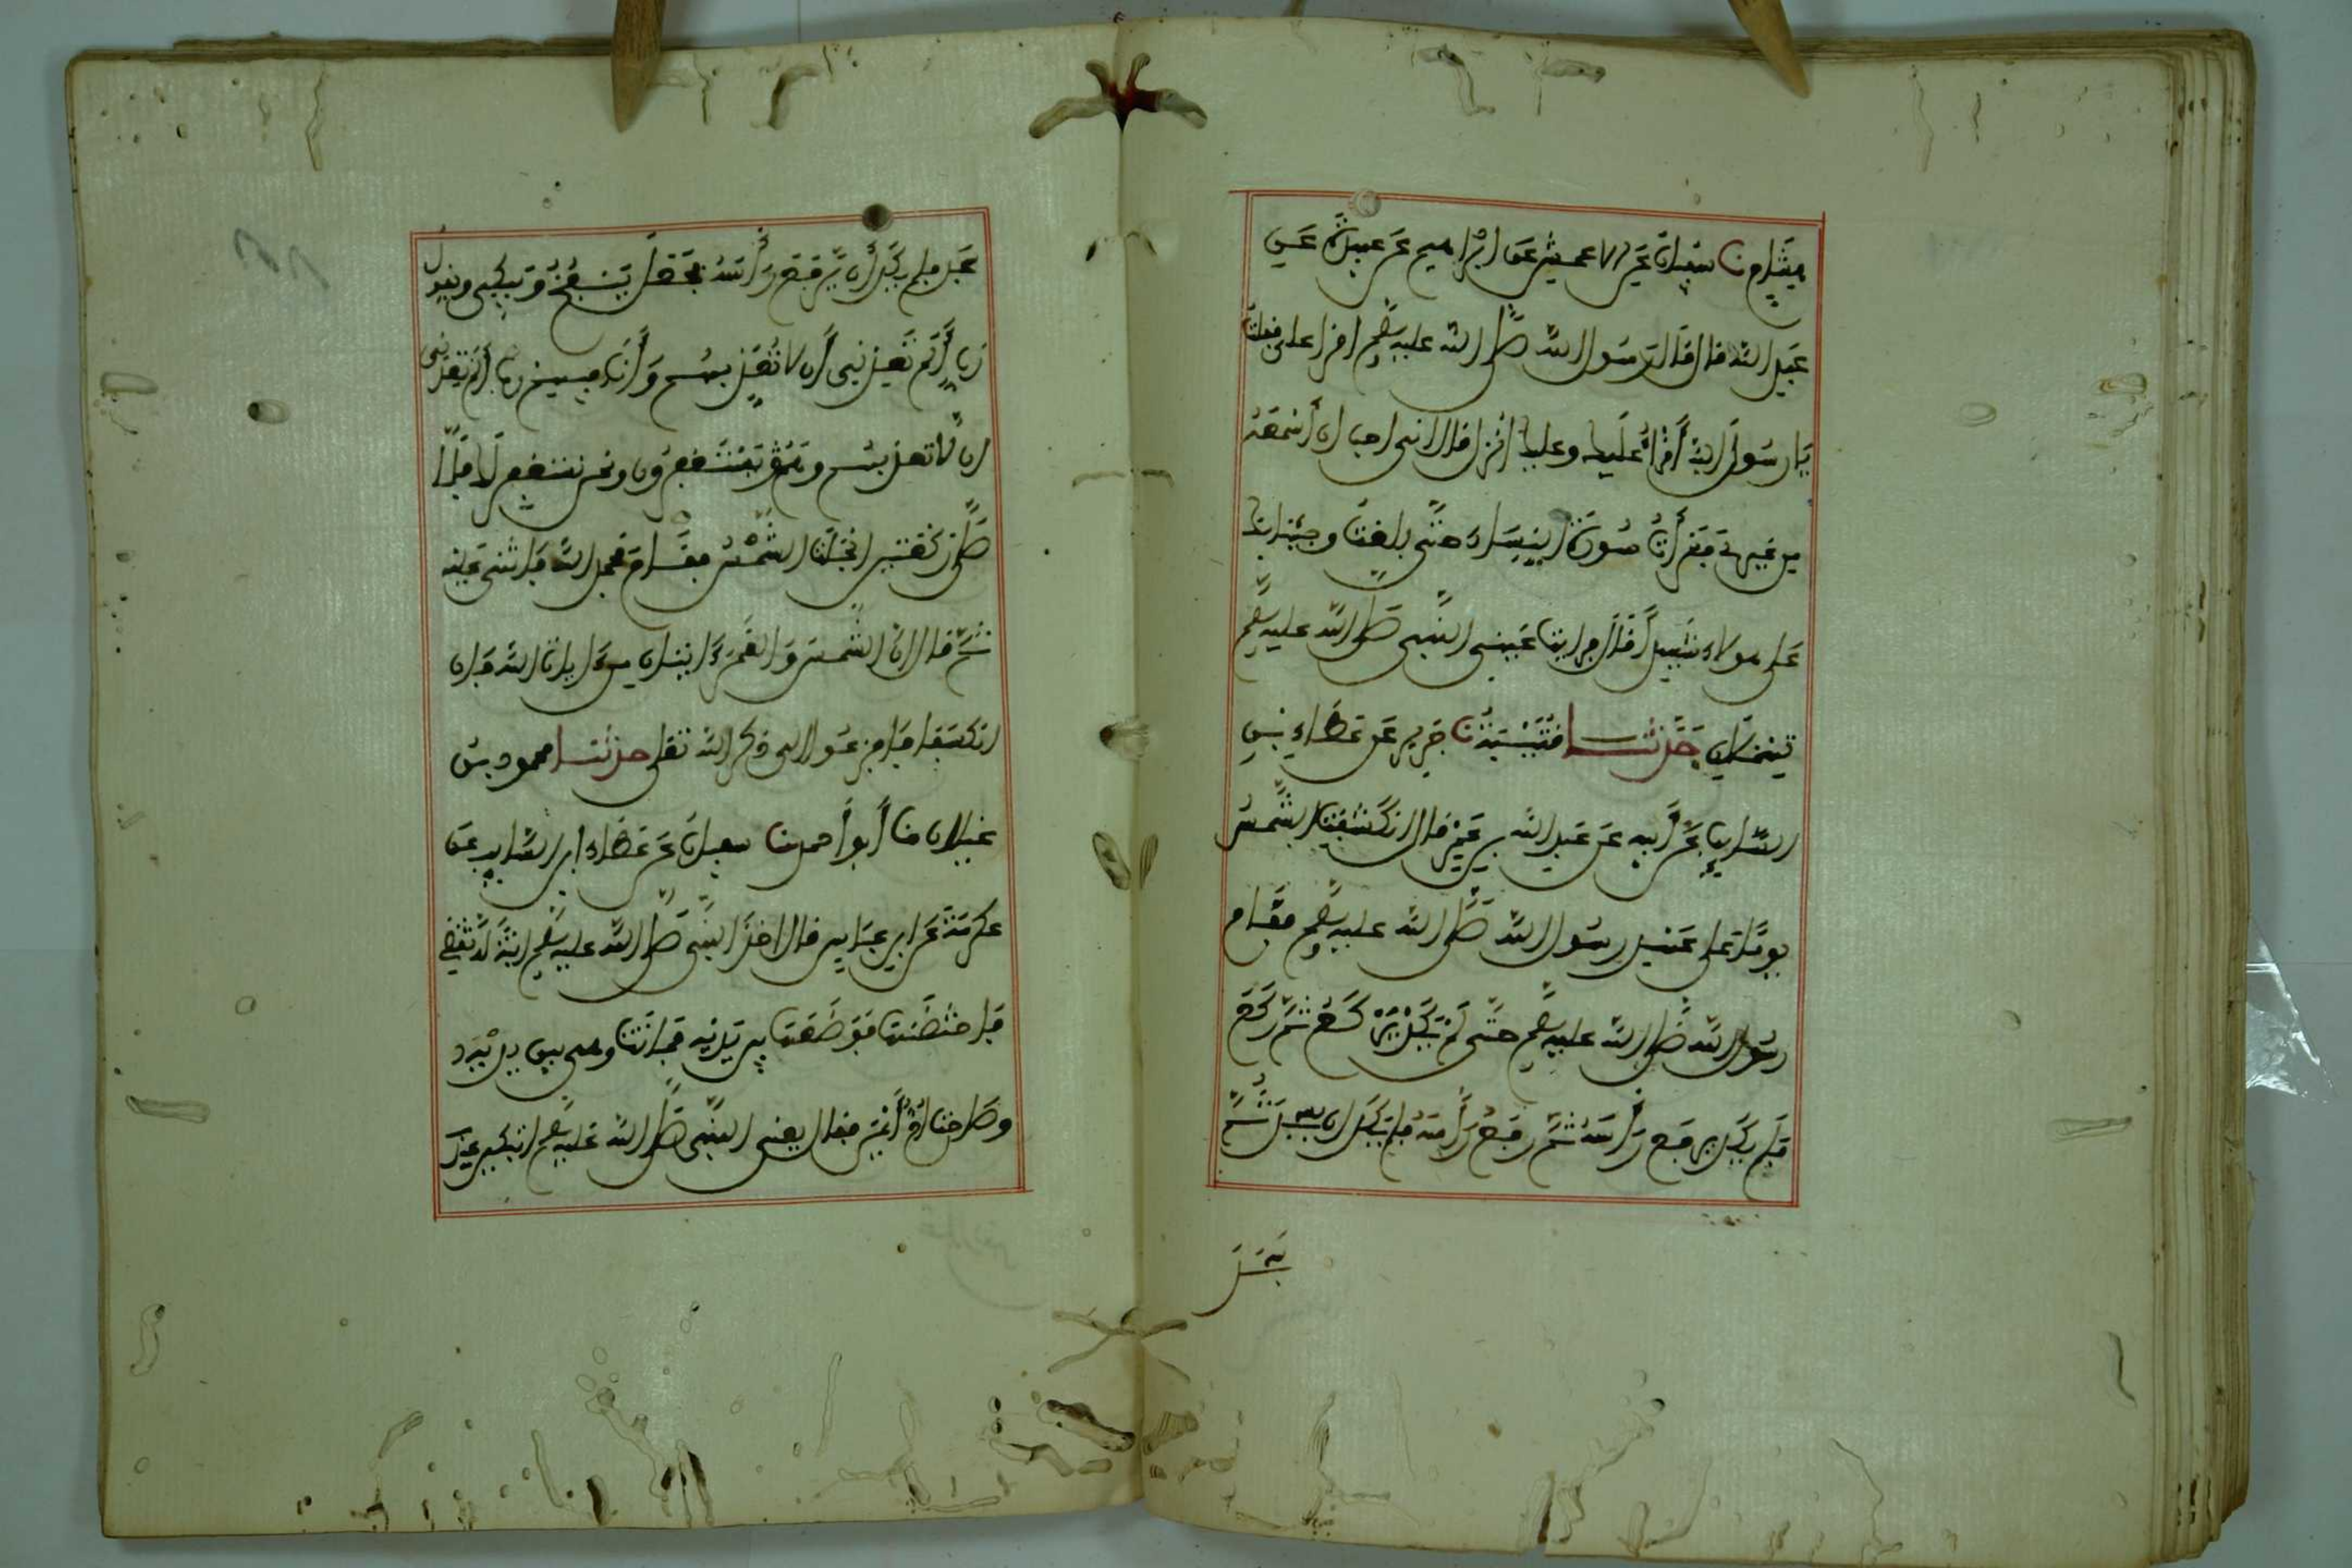 هشام نا سفيان عن الاعمش عن ابراهيم عن عبيدة عن
عبد الله قال قال لي رسول الله صلى الله عليه وسلم اقرا علي فقلت
يا رسول الله أقرأ عليك وعليك انزل قال اني احب ان أسمعه
من غيري فقرأت سورة النساء حتى بلغت وجئنا بك
على هولاء شهيدا قال فرايت عيني النبي صلى الله عليه وسلم
تهملان حدثنا قتيبة نا جرير عن عطاء بن
السائب عن أبيه عن عبد الله بن عمر قال انكسفت الشمس
يوما على عهد رسول الله صلى الله عليه وسلم فقام
رسول الله صلى الله عليه وسلم حتى لم يكد يركع ثم ركع
فلم يكد يرفع رأسه ثم رفع رأسه فلم يكد ان يسجد ثم
سجد
سجد فلم يكد أن يرفع رأسه فجعل ينفخ ويبكي ويقول
رب ألم تعدني أن لا تعذبهم وأنا فيهم رب ألم تعدني
ان لا تعذبهم وهم يستغفرون ونحن نستغفرك فلما
صلى ركعتين انجلت الشمس فقام فحمد الله واثنى عليه
ثم قال ان الشمس والقمر ءايتان من ءايات الله فان
انكسفا فافزعوا الى ذكر الله تعلى حدثنا محمود بن
غيلان نا أبو أحمد نا سفيان عن عطاء ابن السايب عن
عكرمة عن ابن عباس قال اخذ النبي صلى الله عليه وسلم ابنة له تقضي
فاحتضنها فوضعها بين يديه فماتت وهي بين يديه
وصاحت ام أيمن فقال يعني النبي صلى الله عليه وسلم اتبكين عند